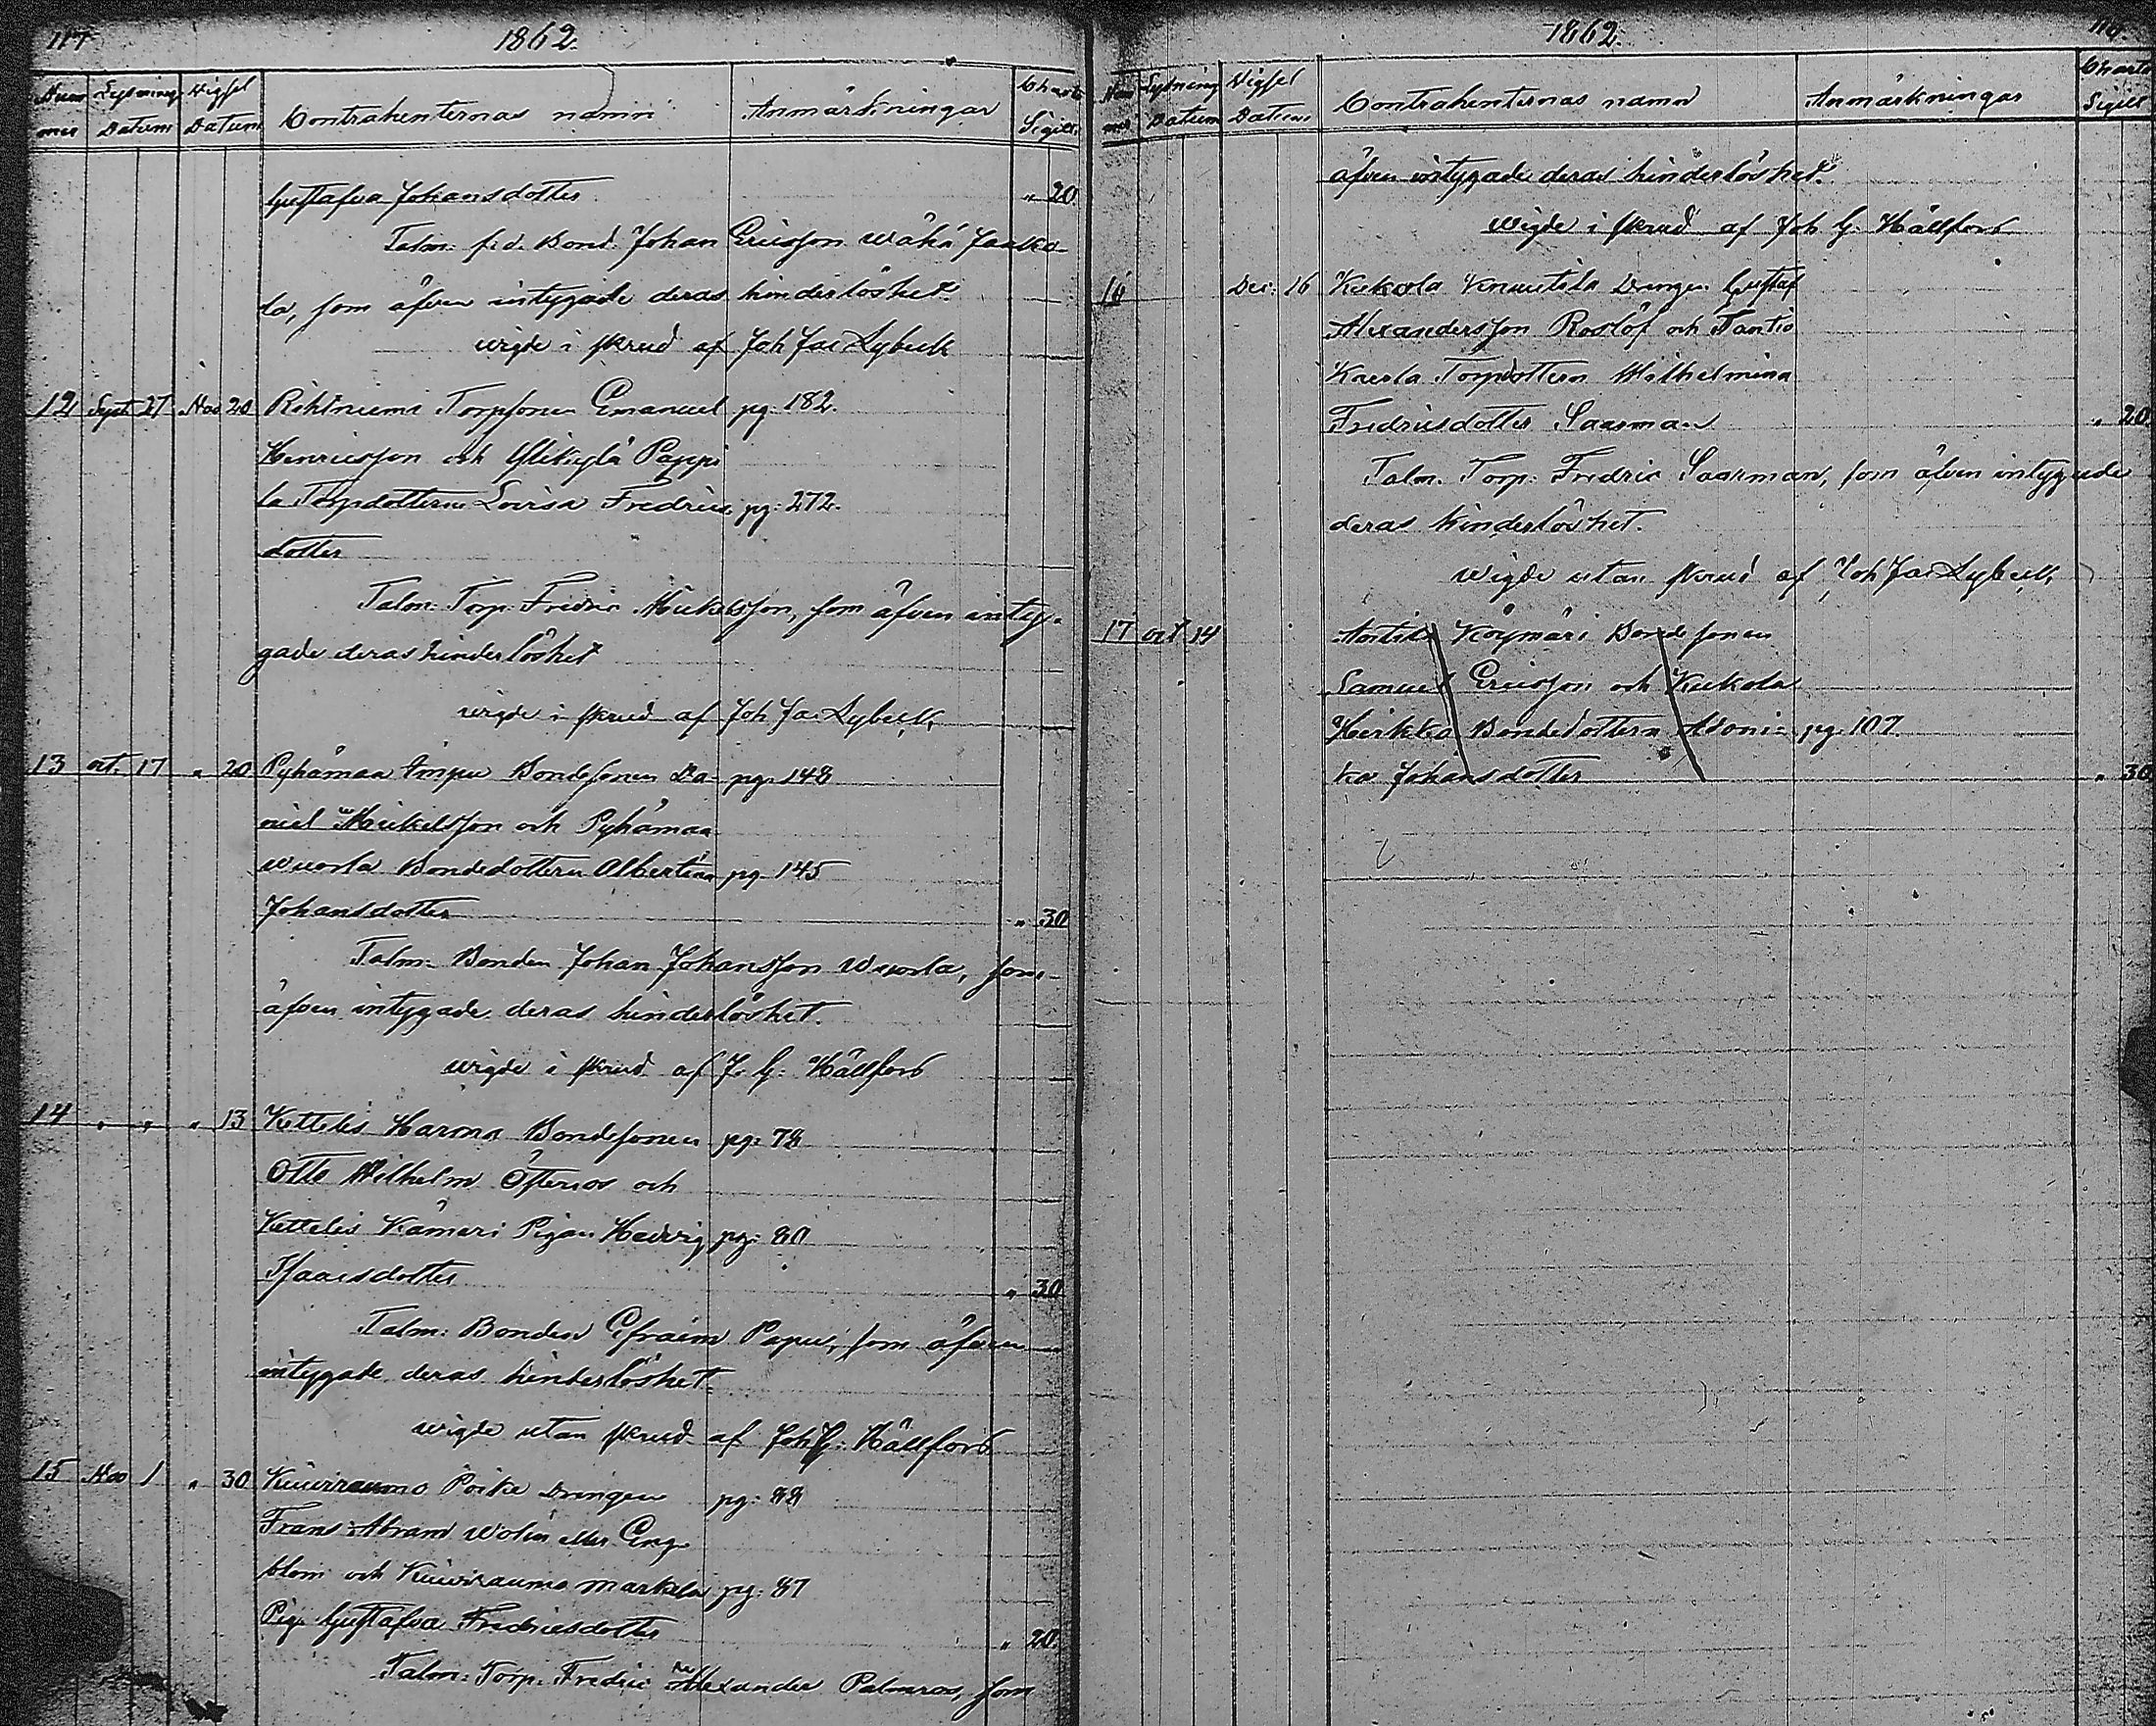 117
1862.
Num
mer
Lysnings
Datum
Vigsel
Datum
Contrahenternas namn
Anmärkningar
Charta
Sigill:
Gustafva Johansdotter „ 20.
Talm: f.d. Bond. Johan Ericsson Wähä Jaakko-
la, som äfven intygade deras hinderlöshet.
wigde i skrud af Joh Jac Lybeck
12 Sept. 27 Nov 20 Rihtniemi Torpsonen Emanuel pg. 182.
Henricsson och Ylikylä Pappi
la Torpdottern Lovisa Fredrics pg: 272.
dotter
Talm: Torp: Fredric Mickelsson, som äfven inty-
gade deras hinderlöshet
wigde i skrud af Joh Jac Lybeck,
13 oct. 17 „ 20 Pyhämaa Simpu Bondesonen Da- pg. 148
niel Mickelsson och Pyhämaa
Wuorla Bondedottern Albertina pg. 145
Johansdotter „ 30
Talm: Bonden Johan Johansson Wuorla, som
äfven intygade deras hinderlöshet.
wigde i skrud af J. G: Hällfors
14 „ „ „ 13 Ketteli Harma Bondesonen pg: 78
Otto Wilhelm och
Ketteli Kämäri Pigan Hedvig pg: 80
Isaacsdotter „ 30
Talm: Bonden Efraim Papu, som äfven
intygade deras hinderlöshet.
wigde utan skrud af Joh G: Hällfors
15 Nov 1 „ 30 Kuiviraumo Poika Drengen pg: 88
Frans Abram Wolin eller Eng-
blom och Kuiviraumo Markula pg: 87
Pig. Gustafva Fredricsdotter „ 20.
Talm: Torp. Fredric Alexander Palmros, som
1862.
118
Num
mer
Lysning
Datum
Vigsel
Datum
Contrahenternas namn
Anmärkningar
Charta
Sigill
äfven intygade deras hinderlöshet.
wigde i skrud af Joh G. Hällfors
16 Dec: 16 Kukola Knuutila Drengen Gustaf
Alexandersson Roslöf och Santio
Kaurla Torpdottern Wilhelmina
Fredricsdotter Saarman „ 20
Talm. Torp: Fredric Saarman, som äfven intygade
deras hinderlöshet.
wigde utan skrud af Joh Jac Lybeck,
17 oct 14 Köymäri Bondesonen
Samuel Ericsson och Kukola
Heikkilä Bondedottern Adoni- pg. 107.
ka Johansdotter „ 30